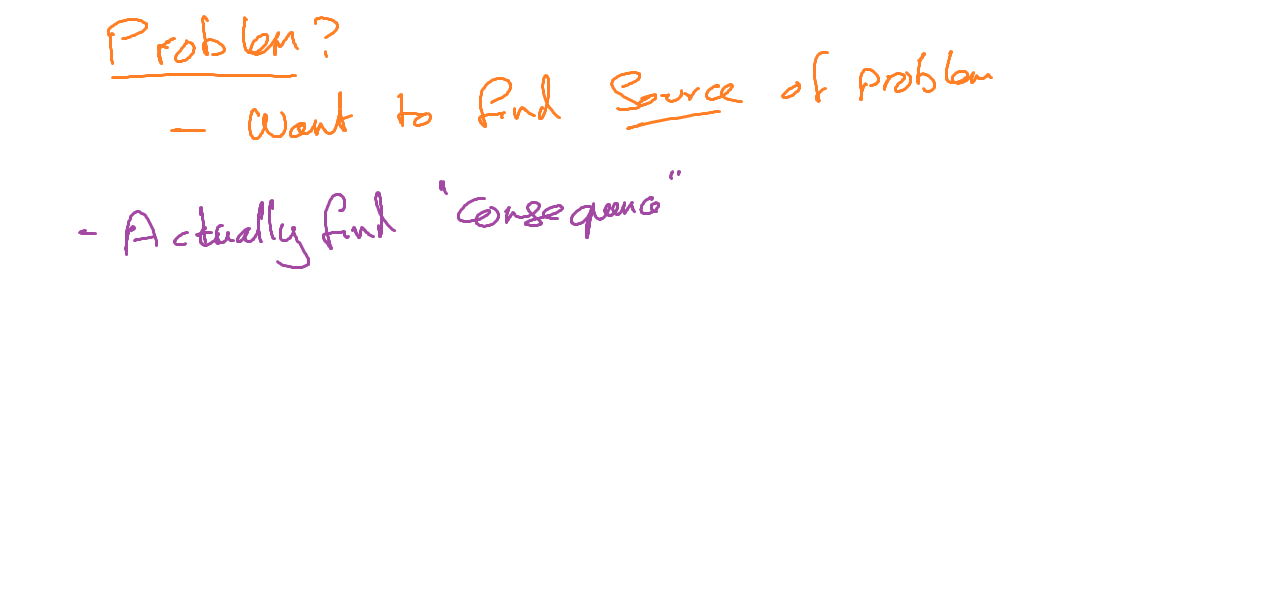 Problem?
- Want to find Source of problem
- Actually find "consequence"